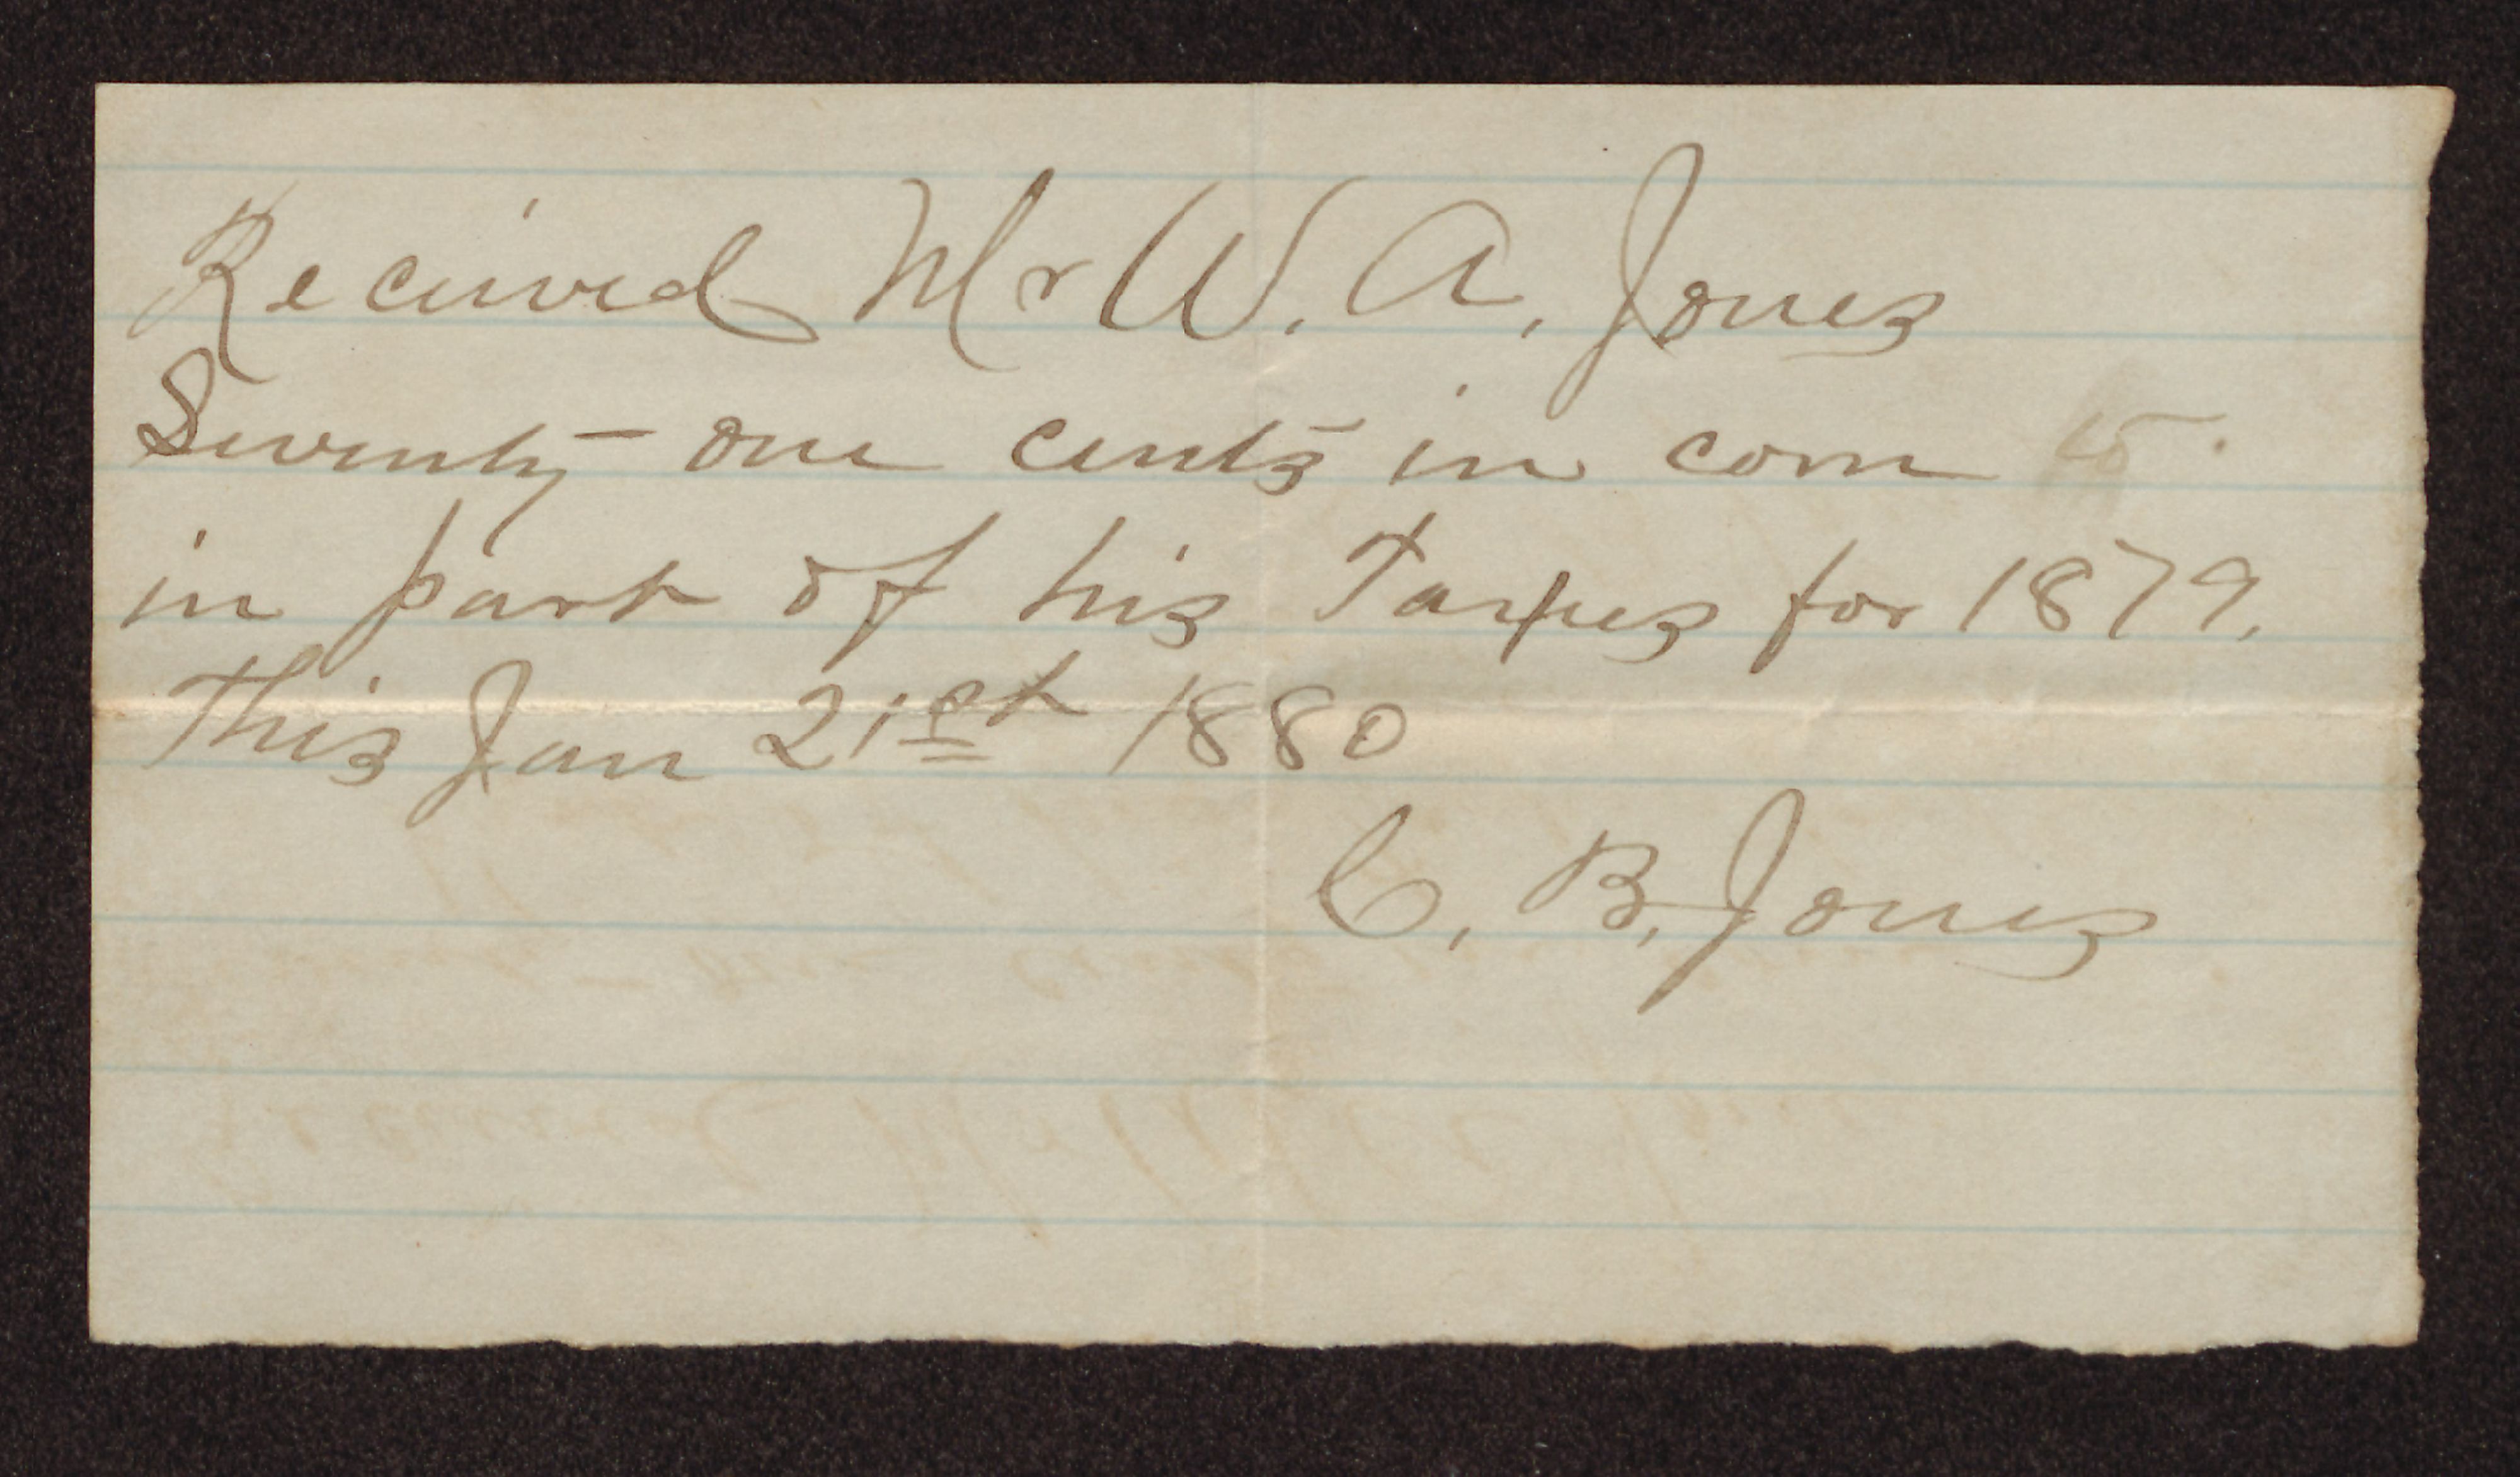 Received Mr W. A. Jones
Seventy-one cents in corn
in part of his Taxes for 1879.
This Jan 21st 1880
C. B. Jones